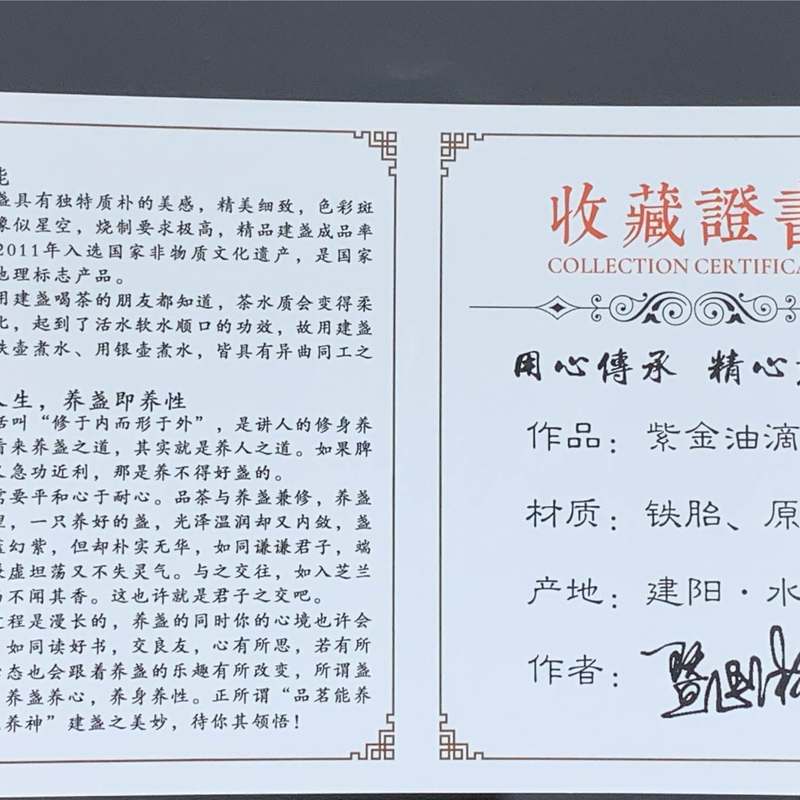 能
盏具有独特质朴的美感，精美细致，色彩斑
像似星空，烧制要求极高，精品建盏成品率
2011年入选国家非物质文化遗产，是国家
地理标志产品。
用建盏喝茶的朋友都知道，茶水质会变得柔
化，起到了活水软水顺口的功效，故用建盏
铁壶煮水、用银壶煮水，皆具有异曲同工之
人生，养盏即养性
话叫“修于内而形于外”，是讲人的修身养
看来养盏之道，其实就是养人之道。如果脾
又急功近利，那是养不得好盏的。
常要平和心于耐心。品茶与养盏兼修，养盏
，一只养好的盏，光泽温润却又内敛，盏
蓝幻紫，但却朴实无华，如同谦谦君子，端
虚坦荡又不失灵气。与之交往，如入芝兰
而不闻其香。这也许就是君子之交吧。
过程是漫长的，养盏的同时你的心境也许会
，如同读好书，交良友，心有所思，若有所
态也会跟着养盏的乐趣有所改变，所谓盏
，养盏养心，养身养性。正所谓“品茗能养
养神”建盏之美妙，待你其领悟！
收藏證書
COLLECTION CERTIFICA
用心傳承 精心
作品：紫金油滴
材质：铁胎、原
产地：建阳·水
作者：